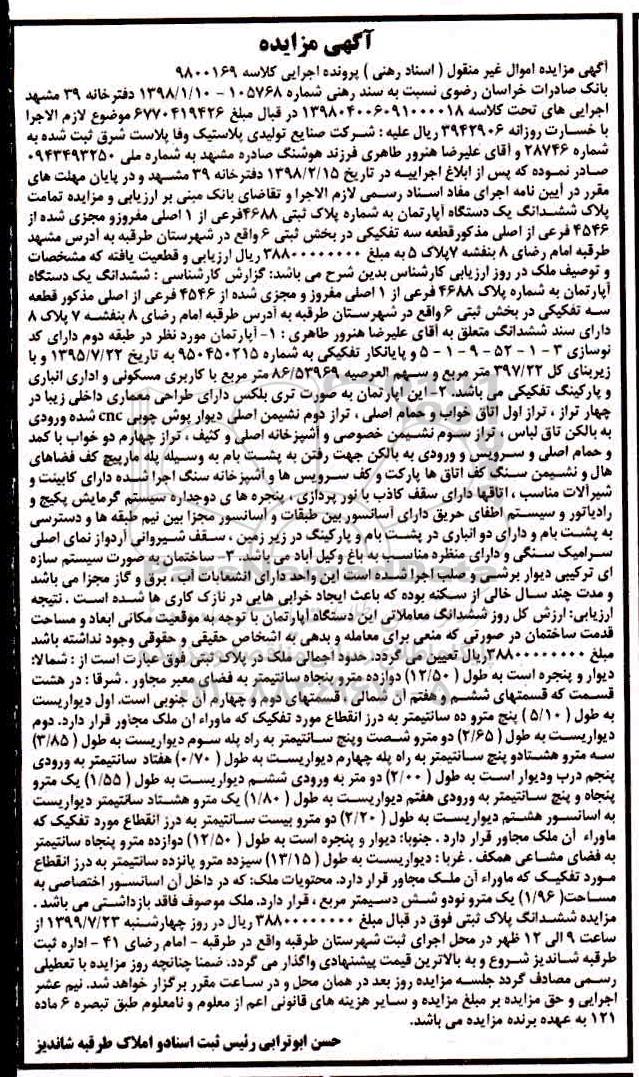 آگهی مزایده
آگهی مزایده اموال غیر منقول ( اسناد رهنی ) پرونده اجرایی کلاسه ۹۸۰۰۱۶۹
بانک صادرات خراسان رضوی نسبت به سند رهنی شماره ۱۰۵۷۶۸ - ۱۳۹۸/۱/۱۰ دفترخانه ۳۹ مشهد
اجرایی های تحت کلاسه ۱۳۹۸۰۴۰۰۶۰۹۱۰۰۰۰۱۸ در قبال مبلغ ۶۷۷۰۴۱۹۴۲۶ موضوع لازم الاجرا
با خسارت روزانه ۳۹۴۲۹۰۶ ریال علیه : شرکت صنایع تولیدی پلاستیک وفا پلاست شرق ثبت شده به
شماره ۲۸۷۴۶ و آقای علیرضا هنرور طاهری فرزند هوشنگ صادره مشهد به شماره ملی ۰۹۴۳۴۹۳۲۵۰
صادر نموده که پس از ابلاغ اجراییه در تاریخ ۱۳۹۸/۲/۱۵ دفترخانه ۳۹ مشهد و در پایان مهلت های
مقرر در آیین نامه اجرای مفاد اسناد رسمی لازم الاجرا و تقاضای بانک مبنی بر ارزیابی و مزایده تمامت
پلاک ششدانگ یک دستگاه آپارتمان به شماره پلاک ثبتی ۴۶۸۸فرعی از ۱ اصلی مفروزو مجزی شده از
۴۵۴۶ فرعی از اصلی مذکورقطعه سه تفکیکی در بخش ثبتی ۶ واقع در شهرستان طرقبه به آدرس مشهد
طرقبه امام رضای ۸ بنفشه ۷پلاک ۵ به مبلغ ۳۸۸۰۰۰۰۰۰۰۰ ریال ارزیابی و قطعیت یافته که مشخصات
و توصیف ملک در روز ارزیابی کارشناس بدین شرح می باشد: گزارش کارشناسی : ششدانگ یک دستگاه
آپارتمان به شماره پلاک ۴۶۸۸ فرعی از ۱ اصلی مفروز و مجزی شده از ۴۵۴۶ فرعی از اصلی مذکور قطعه
سه تفکیکی در بخش ثبتی ۶ واقع در شهرستان طرقبه به آدرس طرقبه امام رضای ۸ بنفشه ۷ پلاک ۸
دارای سند ششدانگ متعلق به آقای علیرضا هنرور طاهری : ۱- آپارتمان مورد نظر در طبقه دوم دارای کد
نوسازی ۳ - ۱ - ۵۲ - ۹ - ۱ - ۵ و پایانکار تفکیکی به شماره ۹۵۰۴۵۰۲۱۵ به تاریخ ۱۳۹۵/۷/۲۲ و با
زیربنای کل ۳۹۷/۲۲ متر مربع و سهم العرصیه ۸۶/۵۳۹۶۹ متر مربع با کاربری مسکونی و اداری انباری
و پارکینگ تفکیکی می باشد. ۲- این اپارتمان به صورت تری بلکس دارای طراحی معماری داخلی زیبا در
چهار تراز ، تراز اول اتاق خواب و حمام اصلی ، تراز دوم نشیمن اصلی دیوار پوش چوبی cnc شده ورودی
به بالکن تاق لباس ، تراز سوم نشیمن خصوصی و آشپزخانه اصلی و کثیف ، تراز چهارم دو خواب با کمد
و حمام اصلی و سرویس و ورودی به بالکن جهت رفتن به پشت بام به وسیله پله مارپیچ کف فضاهای
هال و نشیمن سنگ کف اتاق ها پارکت و کف سرویس ها و آشپزخانه سنگ اجرا شده دارای کابینت و
شیرآلات مناسب ، اتاقها دارای سقف کاذب با نور پردازی ، پنجره ها ی دوجداره سیستم گرمایش پکیج و
رادیاتور و سیستم اطفای حریق دارای آسانسور بین طبقات و اسانسور مجزا بین نیم طبقه ها و دسترسی
به پشت بام و دارای دو انباری در پشت بام و پارکینگ در زیر زمین ، سقف شیروانی آردواز نمای اصلی
سرامیک سنگی و دارای منظره مناسب به باغ وکیل آباد می باشد. ۳- ساختمان به صورت سیستم سازه
ای ترکیبی دیوار برشی و صلب اجرا شده است این واحد دارای انشعابات آب، برق و گاز مجزا می باشد
و مدت چند سال خالی از سکنه بوده که باعث ایجاد خرابی هایی در نازک کاری ها شده است . نتیجه
ارزیابی: ارزش کل روز ششدانگ معاملاتی این دستگاه آپارتمان با توجه به موقعیت مکانی ابعاد و مساحت
قدمت ساختمان در صورتی که منعی برای معامله و بدهی به اشخاص حقیقی و حقوقی وجود نداشته باشد
مبلغ ۳۸۸۰۰۰۰۰۰۰۰ریال تعیین می گردد. حدود اجمالی ملک در پلاک ثبتی فوق عبارت است از : شمالا:
دیوار و پنجره است به طول ( ۱۲/۵۰) دوازده مترو پنجاه سانتیمتر به فضای معبر مجاور . شرقا : در هشت
قسمت که قسمتهای ششم و هفتم آن شمالی ، قسمتهای دوم و چهارم آن جنوبی است. اول دیواریست
به طول ( ۵/۱۰) پنج مترو ده سانتیمتر به درز انقطاع مورد تفکیک که ماوراء ان ملک مجاور قرار دارد. دوم
دیواریست به طول ( ۲/۶۵) دو مترو شصت وپنج سانتیمتر به راه پله سوم دیواریست به طول ( ۳/۸۵)
سه مترو هشتادو پنج سانتیمتر به راه پله چهارم دیواریست به طول ( ۰/۷۰) هفتاد سانتیمتر به ورودی
پنجم درب ودیوار است به طول ( ۲/۰۰) دو متر به ورودی ششم دیواریست به طول ( ۱/۵۵) یک مترو
پنجاه و پنج سانتیمتر به ورودی هفتم دیواریست به طول ( ۱/۸۰) یک مترو هشتاد سانتیمتر دیواریست
به اسانسور هشتم دیواریست به طول ( ۲/۲۰) دو مترو بیست سانتیمتر به درز انقطاع مورد تفکیک که
ماوراء آن ملک مجاور قرار دارد . جنوبا: دیوار و پنجره است به طول ( ۱۲/۵۰) دوازده مترو پنجاه سانتیمتر
به فضای مشاعی همکف . غربا : دیواریست به طول ( ۱۳/۱۵) سیزده مترو پانزده سانتیمتر به درز انقطاع
مورد تفکیک که ماوراء آن ملک مجاور قرار دارد. محتویات ملک: که در داخل آن اسانسور اختصاصی به
مساحت( ۱/۹۶) یک مترو نودو شش دسیمتر مربع ، قرار دارد. ملک موصوف فاقد بازداشتی می باشد .
مزایده ششدانگ پلاک ثبتی فوق در قبال مبلغ ۳۸۸۰۰۰۰۰۰۰۰ ریال در روز چهارشنبه ۱۳۹۹/۷/۲۳ از
ساعت ۹ الی ۱۲ ظهر در محل اجرای ثبت شهرستان طرقبه واقع در طرقبه - امام رضای ۴۱ - اداره ثبت
طرقبه شاندیز شروع و به بالاترین قیمت پیشنهادی واگذار می گردد: ضمنا چنانچه روز مزایده با تعطیلی
رسمی مصادف گردد جلسه مزایده روز بعد در همان محل و در ساعت مقرر برگزار خواهد شد. نیم عشر
اجرایی و حق مزایده بر مبلغ مزایده و سایر هزینه های قانونی اعم از معلوم و نامعلوم طبق تبصره ۶ ماده
۱۲۱ به عهده برنده مزایده می باشد.
حسن ابوترابی رئیس ثبت اسنادو املاک طرقبه شاندیز